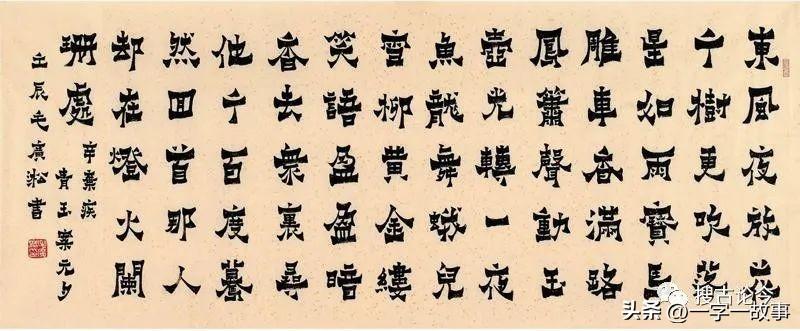 東風夜放花
千樹更吹落
星如雨寶馬
雕車香滿路
鳳簫聲動玉
壺光轉一夜
魚龍舞蛾兒
雪柳黃金縷
笑語盈盈暗
香去衆裏尋
他千百度驀
然回首那人
却在燈火闌
珊處
辛棄疾
青玉案元夕
壬辰毛廣淞書
搜古论今
头条@一字一故事